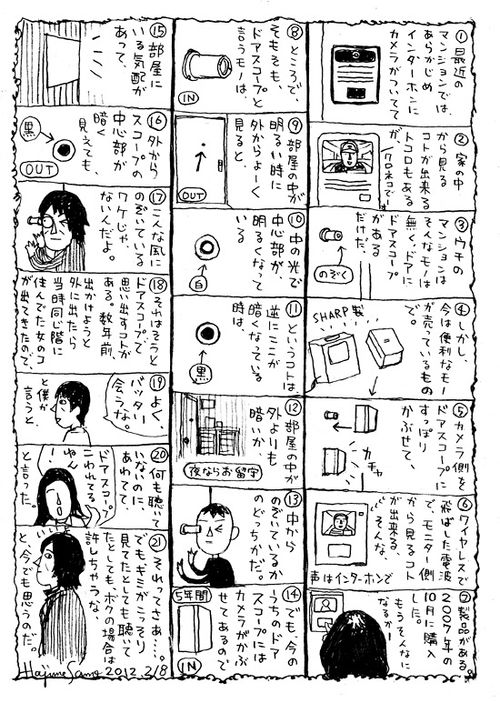 ①最近の
マンションでは
あらかじめ
インターホンに
カメラがついてて
②家の中
から見る
コトが出来る
トコロもある
が、
クロネコでーす
③ウチの
マンションは
そんなモノは
無く、ドアに
ドアスコープ
がある
だけだ。
のぞく
④しかし、
今は便利なモー
が売っているもの
で。
SHARP製
⑤カメラ側を
ドアスコープに
すっぽり
かぶせて、
カチャ
⑥ワイヤレスで
飛ばした電波
で、モニター側
から見るコト
が出来る、
そんな、
声はインターホンで
⑦製品がある。
2007年の
10月に購入
した。
もうそんなに
なるか!
⑧ところで、
そもそも、
ドアスコープと
言うモノは、
IN
⑨部屋の中が
明るい時に
外からよーく
見ると、
OUT
⑩中の光で
中心部が、
明るくなって
いる
白
⑪というコトは、
逆にここが
暗くなっている
時は、
黒
⑫部屋の中が
外よりも
暗いか
夜ならお留守
⑬中から
のぞいているか
のどっちかだ。
⑭でも、今の
うちのドア
スコープには
カメラがかぶ
せてあるので
5年間
IN
⑮部屋に
いる気配が
あって、
⑯外から
スコープの
中心部が
暗く
見えても、
黒
OUT
⑰こんな風に
のぞいている
ワケじゃ、
ないんだよ。
⑱それはそうと
ドアスコープで
思い出すコトが
ある。数年前、
出かけようと
外に出たら
当時同じ階に
住んでた女のコ
が出てきたので、
⑲よく、
バッタリ
会うな。
と僕が
言うと
⑳何も聴いて
ないのに
あわてて、
ドアスコープ
こわれてる
やん!
と言った。
㉑それってさあ…。
でもキミがこっそり
見てたとしても聴いて
たとしてもボクの場合は
許しちゃうな、
と、今でも思うのだ。
Hajime Sano 2012.2/8